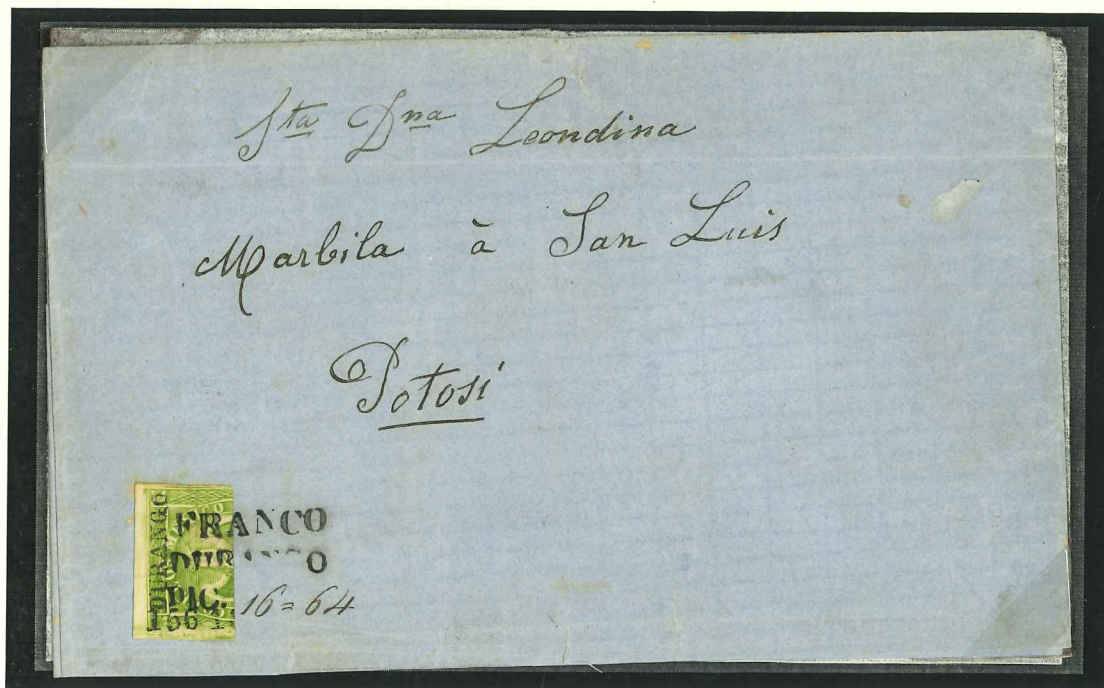 Sta Dna Leondina
Marbila à San Luis
Potosí
DURANGO
FRANCO
DURANGO
DIC. 16=64